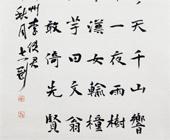 天千山響
一夜雨樹
漢女輸橦
芋田文翁
敢倚先賢
州李使君
秋月